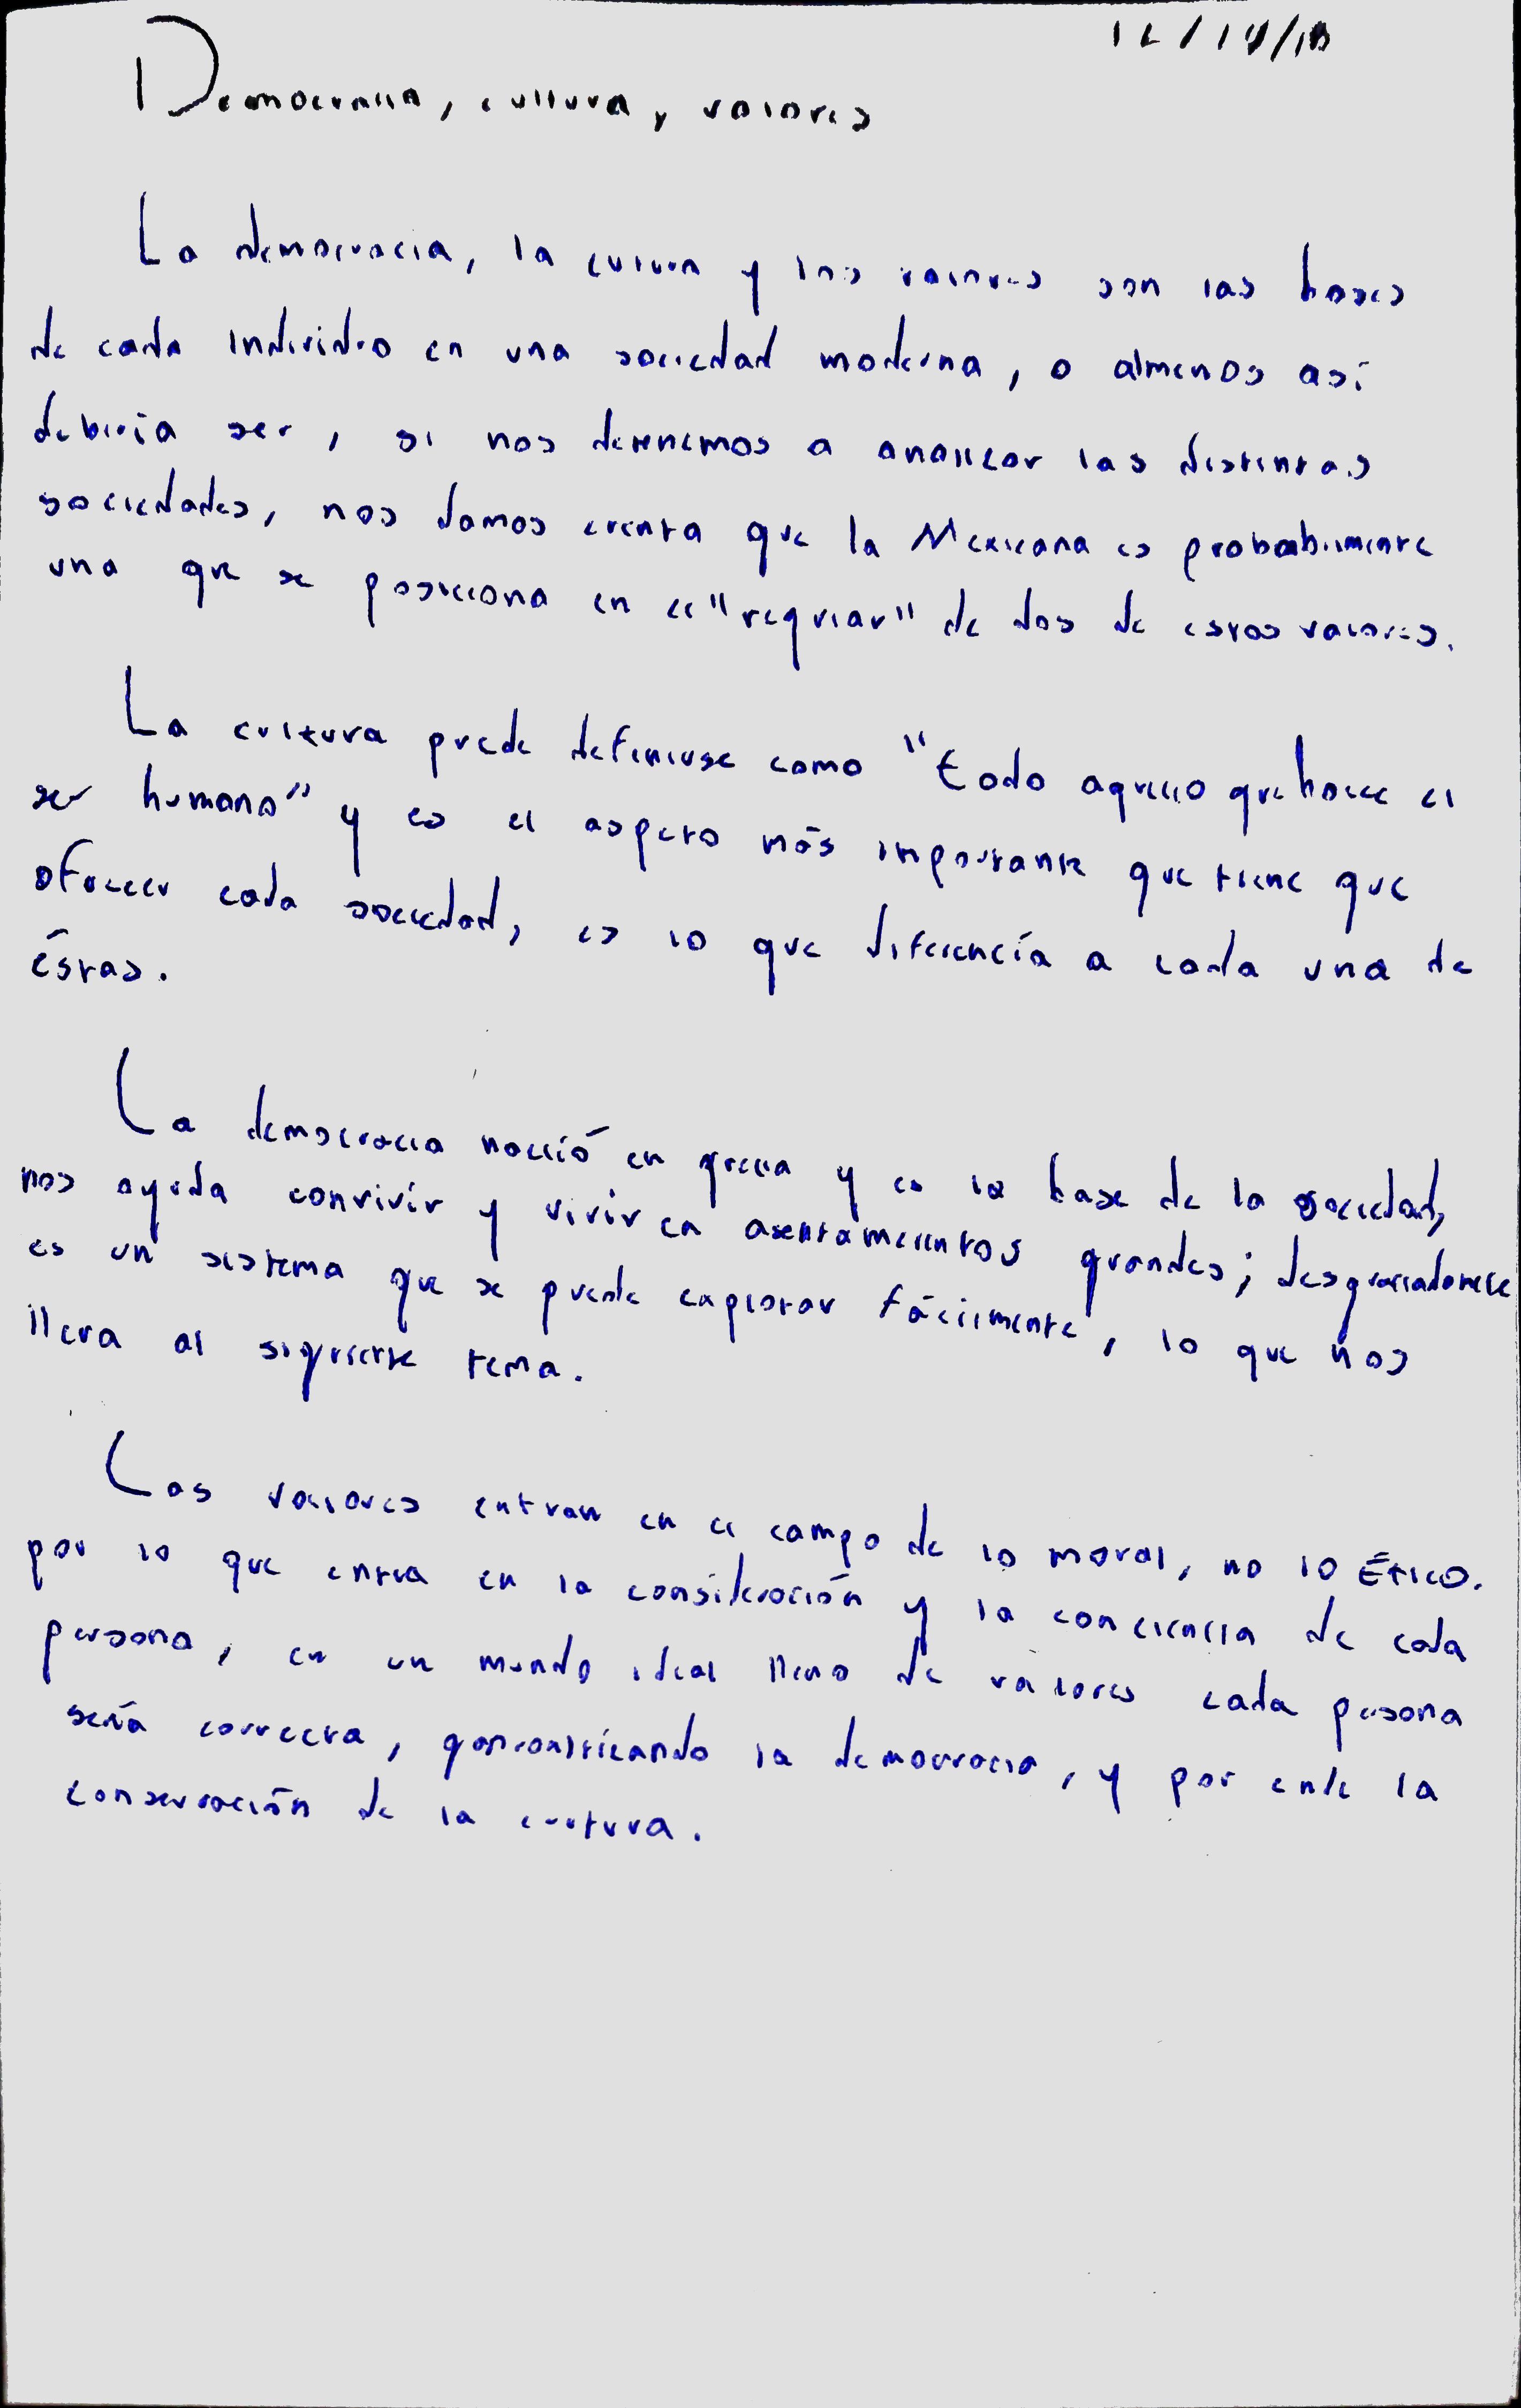 12/14/18
Democracia, cultura, valores
La democracia, la cultura y los valores son las bases
de cada individuo en una sociedad moderna, o almenos así
debería ser, si nos detenemos a analizar las distintas
sociedades, nos damos cuenta que la Mexicana es probablemente
una que se posiciona en el "regular" de dos de estos valores.
La cultura puede definirse como "todo aquello que hace el
ser humano" y es el aspecto más importante que tiene que
ofrecer cada sociedad, es lo que diferencía a cada una de
éstas.
La democracia nació en grecia y es la base de la sociedad,
nos ayuda convivir y vivir en asentamientos grandes; desgraciadamente
es un sistema que se puede explotar fácilmente, lo que nos
lleva al siguiente tema.
Los valores entran en el campo de lo moral, no lo Ético.
por lo que entra en la consideración y la conciencia de cada
persona, en un mundo ideal lleno de valores cada persona
sería correcta, la democracia, y por ende la
conservación de la cultura.